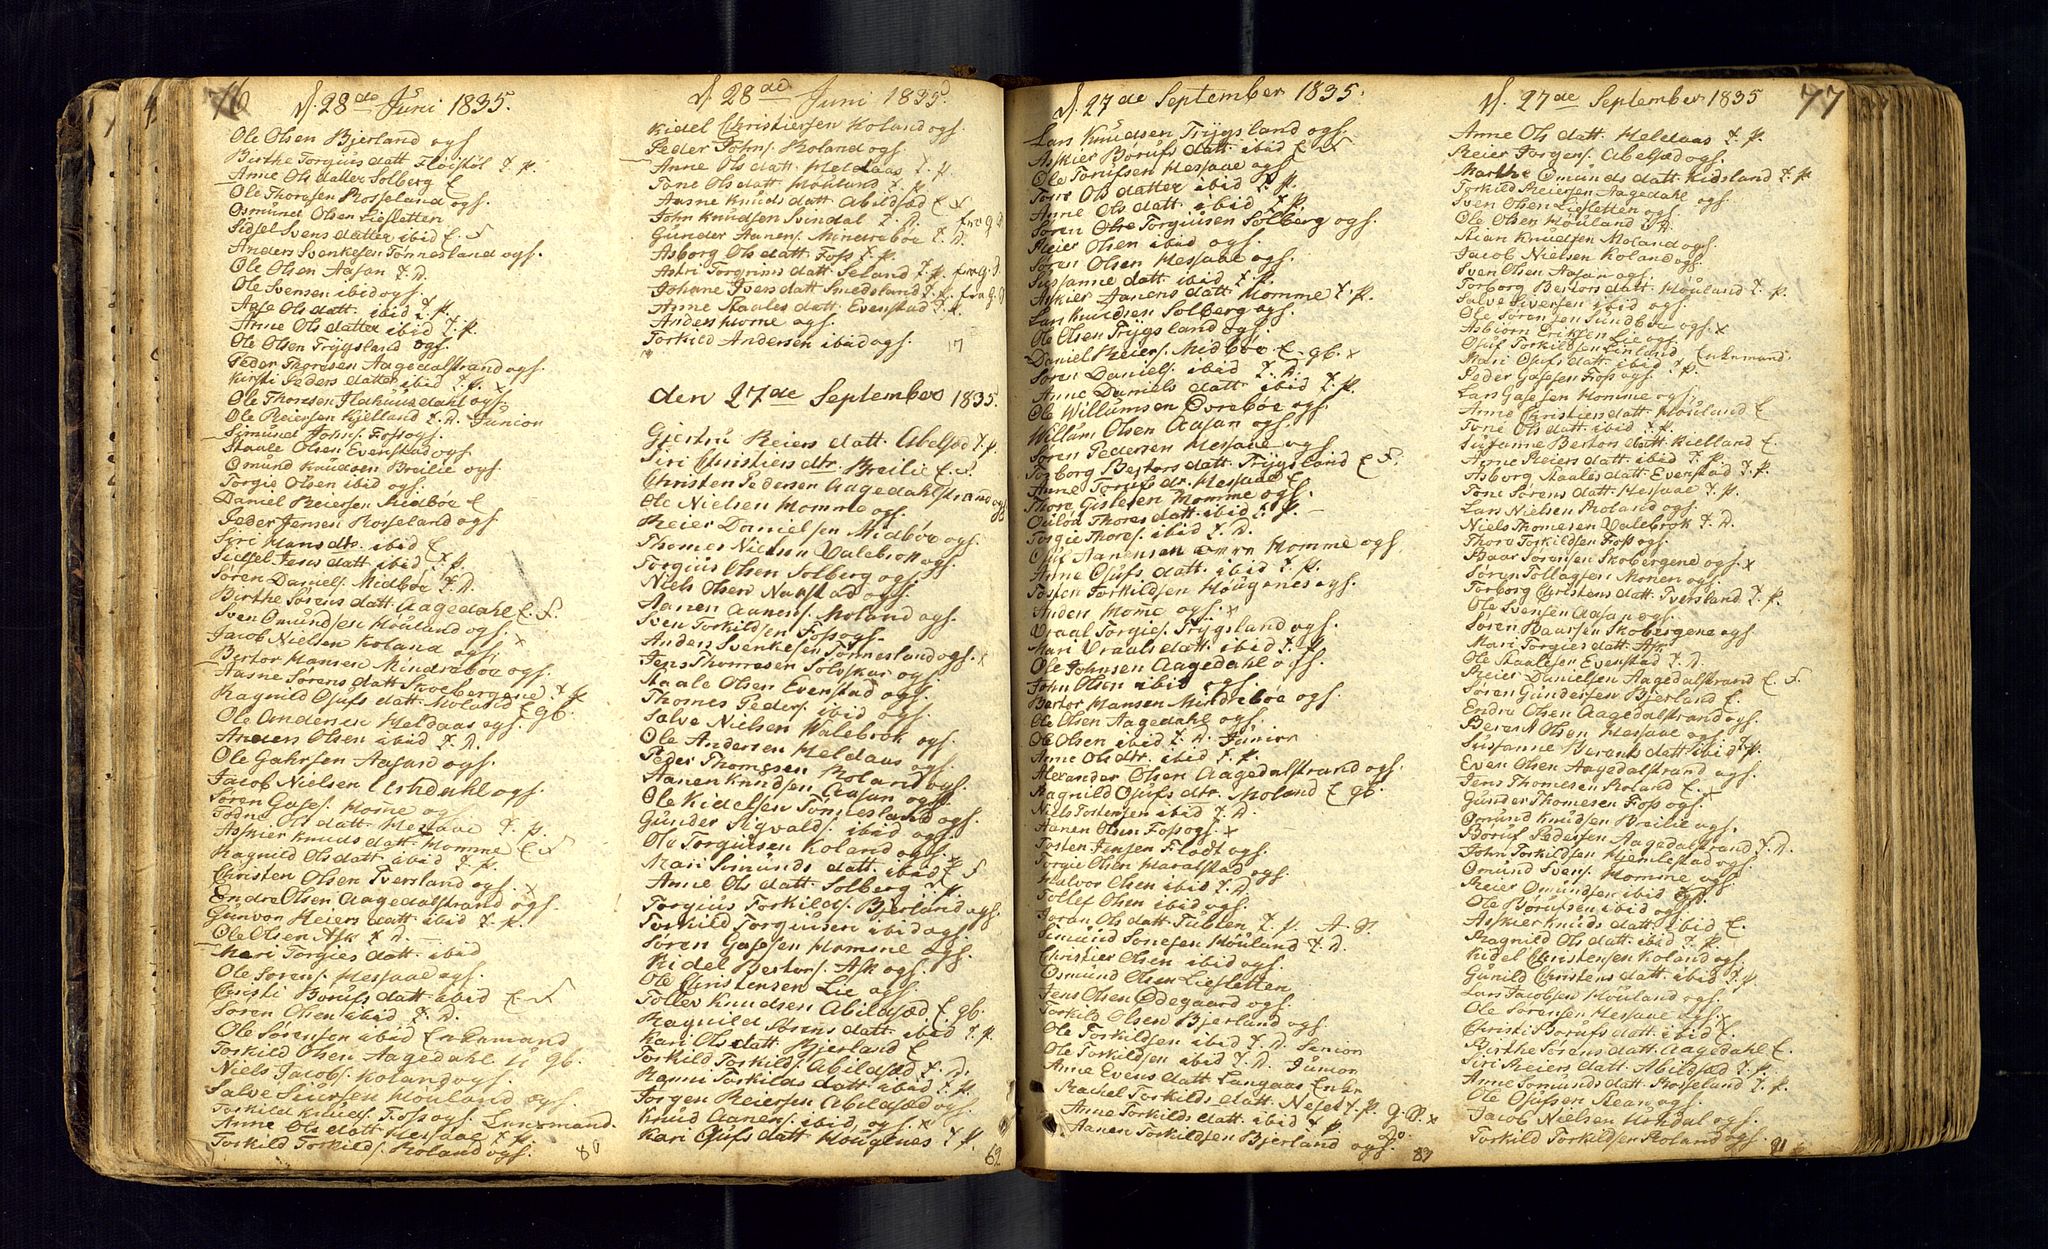 76
d. 28de Juni 1835.
Ole Olsen Bjerland ogf.
Birthe Torgiusdatt Fløistøl f. p.
Anne Olsdatter Solberg E
Ole Thoresen Rosseland ogf.
Osmund Olsen Liesletten
Sidsel Svensdatter ibid E. F
Anders Svenkesen Tonnesland ogf.
Ole Olsen Aasan f. D.
Ole Svensen ibid ogf.
Aase Olsdatt ibid f. p.
Anne Olsdatter ibid f. p.
Ole Olsen Trygsland ogf.
Peder Thoresen Aagedalstrand ogf.
Kirsti Pedersdatter ibid f. p. x
Ole Thoresen
Ole Reiersen Kjelland f. D. Junior
Simund Johns. Foss ogf.
Staale Olsen Evenstad ogf.
Omund Knudsen Breilie ogf.
Torgie Olsen ibid ogf.
Daniel Reiersen Midbøe E
Peder Jensen Rosseland ogf.
Siri Hansdtr. ibid E
Sidsel Jensdatt ibid f. p.
Søren Daniels. Midbøe f. D.
Birthe Sørensdatt Aagedahl E. F.
Sven Omundsen Houland ogf.
Jacob Nielsen Koland ogf. x
Bertor Hansen Mindrebøe ogf.
Aasne Sørensdatt Skoebergene f. p.
Ragnild Osufsdatt Roland E gb.
Ole Andersen Meldaas ogf.
Anders Olsen ibid f. D.
Ole Gahrsen Aasan ogf.
Jacob Nielsen ogf.
Søren Gases. Home og
Todne Olsdatt Messaae f. p.
Askier Knudsdatt Homme E F
Ragnild Olsdatt ibid f. p.
Christen Olsen Tversland ogf. x
Endre Olsen Aagedalstrand ogf.
Gunvor Reiersdatt ibid f. p.
Ole Olsen Ask f. D.
Mari Torgiesdatt ibid
Ole Sørens. Messaae ogf.
Christi Borufsdatt ibid E F
Søren Olsen ibid f. D.
Ole Sørensen ibid Enkemand
Torkild Olsen Aagedahl gb.
Niels Jacobs. Koland ogf.
Salve Siursen Houland ogf.
Torkild Knuds. Foss ogf. Lensmand.
Anne Olsdatt Messaae f. p.
Torkild Torkilds. Roland ogf.
80
d. 28de Juni 1835.
Kidel Christiersen Koland ogf.
Peder Johns. Roland ogf.
Anne Olsdatt. Meldaas f. p.
Tone Olsdatt Houland f. p.
Aasne Knudsdatt Abildsæd E x
John Knudsen Svindal f. D. fra G. G
Gunder Aanens. Mindrebøe f. D.
Asborg Olsdatt Foss f. p.
Astri Torgrimsdatt Seland f. p. fra G. P.
Johane Iversdatt Smedsland f. p. fra G. P
Anne Staalesdatt Evenstad f. p.
Anders Home ogf.
Torkild Andersen ibid ogf. 17
den 27de September 1835.
Gjertru Reiersdatt Abelsæd f. p.
Siri Christiersdtr. Breilie E. F.
Christen Pedersen Aagedahlstrand ogf
Ole Nielsen Homme ogf.
Reier Danielsen Midbøe ogf.
Thomes Nielsen Valebrok ogf.
Torgius Olsen Solberg ogf.
Niels Olsen Navstad ogf.
Aanen Aanens. Roland ogf.
Sven Torkildsen Foss ogf.
Anders Svenkesen Tonnesland ogf. x
Jens Thomesen Solsskar ogf.
Staale Olsen Evenstad ogf.
Thomes Peders. ibid ogf.
Salve Nielsen Walebrok ogf.
Ole Andersen Meldaas ogf.
Peder Thomesen Roland ogf.
Aanen Knudsen Aasan ogf.
Ole Kidelsen Tonnesland ogf.
Gunder Sigvalds. ibid ogf.
Ole Torguisen Koland ogf.
Mari Simundsdatt ibid E F
Anne Olsdatt Solberg f. p.
Torgius Torkilds. Bjerland ogf.
Torkild Torgiusen ibid ogf.
Søren Gasesen Homme ogf.
Kidel Bertors. Ask ogf.
Ole Christensen Lie ogf.
Tollev Knudsen Abildsæd E. gb.
Ragnild Arensdatt ibid f. p.
Kari Olsdatt Bjerland E
Torkild Torkilds. Abildsæd f. D.
Ranni Torkildsdatt ibid f. p.
Jørgen Reiersen Abildsæd ogf.
Knud Aanens. ibid ogf. x
Kari Osufsdatt Hougenes f. p.
62
d. 27de September 1835.
Lars Knudsen Trygsland ogf.
Askier Børufsdatt ibid E F
Ole Torufsen Messaae ogf.
Tone Olsdatter ibid f. p.
Anne Olsdatt ibid f. p.
Søren Olse Torgiusen Solberg ogf.
Reier Olsen ibid ogf.
Søren Olsen Messaae ogf.
Susanne datt ibid f. p.
Askier Aanensdatt Homme f. p.
Lars Knudsen Solberg ogf.
Ole Olsen Trygsland ogf.
Daniel Reiers. Midbøe E. gb. x
Søren Daniels. ibid f. D.
Anne Danielsdatt ibid f. p.
Ole Willumsen Øvrebøe ogf.
Willum Olsen Aasan ogf.
Søren Pedersen Messaae ogf.
Torborg Bertorsdatt Trygsland E F.
Anne Torufsdr. Messaae E
Thore Gislesen Homme ogf.
Thoresdatt ibid f. p.
Torgie Thores. ibid f. D.
Osuf Aanensen Homme ogf.
Anne Osufsdatt ibid f. p.
Tosten Torkildsen Hougenes ogf.
Anders Home ogf. x
Vraal Torgies. Trygsland ogf.
Mari Vraalsdatt ibid f. p.
Ole Johnsen Aagedahl ogf.
John Olsen ibid ogf.
Bertor Hansen Mindrebøe ogf.
Ole Olsen Aagedahl ogf.
Ole Olsen ibid f. D. Junior
Anne Olsdtr. ibid f. p.
Alexander Olsen Aagedalstrand ogf.
Ragnild Osufsdtr. Roland E gb.
Niels Tostensen ibid f. D.
Aanen Olsen Foss ogf. x
Tosten Jensen Flodt ogf.
Torgie Olsen Haraldstad ogf.
Halvor Olsen ibid f. D
Tollef Olsen ibid ogf.
Joran Olsdatt Tublen f. p. A. S.
Simund Sonesen Houland f. D.
Christier Olsen ibid ogf.
Osmund Olsen Liesletten
Jens Olsen Ødegaard ogf.
Torkild Olsen Bjerland ogf.
Ole Torkildsen ibid f. D. Senior
Ole Torkildsen ibid f. D. Junior
Anne Evensdatt Langaas Enke
Rachel Torkildsdatt Neset f. p. G. P. x
Anne Torkildsdatt ibid f. p. do.
Aanen Torkildsen Bjerland ogf.
83
d. 27de September 1835
77
Anne Olsdatt Meldaas f. p.
Reier Jørgens. Abelsæd ogf.
Marthe Omundsdatt Kidsland f. p
Torkild Reiersen Aagedahl ogf.
Sven Olsen Liesletten ogf.
Ole Olsen Houland f. D.
Stian Knudsen Roland ogf.
Jacob Nielsen Koland ogf.
Sven Olsen Aasan ogf.
Torborg Bertorsdatt Houland f. p.
Salve Siversen ibid ogf.
Ole Sørensen Sundbøe ogf. x
Asbiørn Eriksen Lie ogf.
Osuf Torkildsen Enkemand.
Mari Osufsdatt ibid f. p.
Peder Gasesen Foss ogf.
Lars Gasesen Homme ogf.
Anne Christiensdatt Houland E
Tone Olsdatt ibid f. p.
Susanne Bertorsdatt Kielland E.
Anne Reiersdatt ibid f. p.
Asborg Staalesdatt Evenstad f. p.
Tone Sørensdatt Messaae f. p.
Lars Nielsen Roland ogf.
Niels Thomesen Valebrok f. D.
Thore Torkildsen Foss ogf.
Baar Sørensen Skobergene ogf. x
Søren Tollagsen Monen ogf.
Torborg Christensdatt Tversland f. p.
Ole Svensen Aasan ogf.
Søren Baarsen Skobergene ogf
Mari Torgiesdatt Ask
Ole Staalesen Evenstad f. D.
Reier Danielsen Aagedalstrand E. F
Søren Gundersen Bjerland E.
Endre Olsen Aagedalstrand ogf.
Berent Olsen Messaae ogf.
Susanne Berentsdatt ibid f. p.
Even Olsen Aagedalstrand ogf.
Jens Thomesen Roland E.
Gunder Thomesen Foss ogf. x
Omund Knudsen Breilie ogf.
Boruf Pedersen Aagedalstrand f. D.
John Torkildsen Hjemlestad ogf.
Omund Svens. Homme ogf
Reier Omundsen ibid f. D.
Ole Børufsen ibid ogf.
Askier Knudsdatt ibid E.
Ragnild Olsdatt ibid f. p.
Kidel Christensen Koland ogf.
Gunild Christensdatt ibid f. p
Lars Jacobsen Houland ogf.
Ole Sørensen Messaae ogf. x
Christi Borufsdatt ibid E
Birthe Sørensdatt Aagedahl E.
Siri Reiersdatt Abildsæd f. p.
Anne Tomundsdatt Rosseland f. p
Ole Osufsen Rean ogf.
Jacob Nielsen ogf.
Torkild Torkildsen Roland ogf.